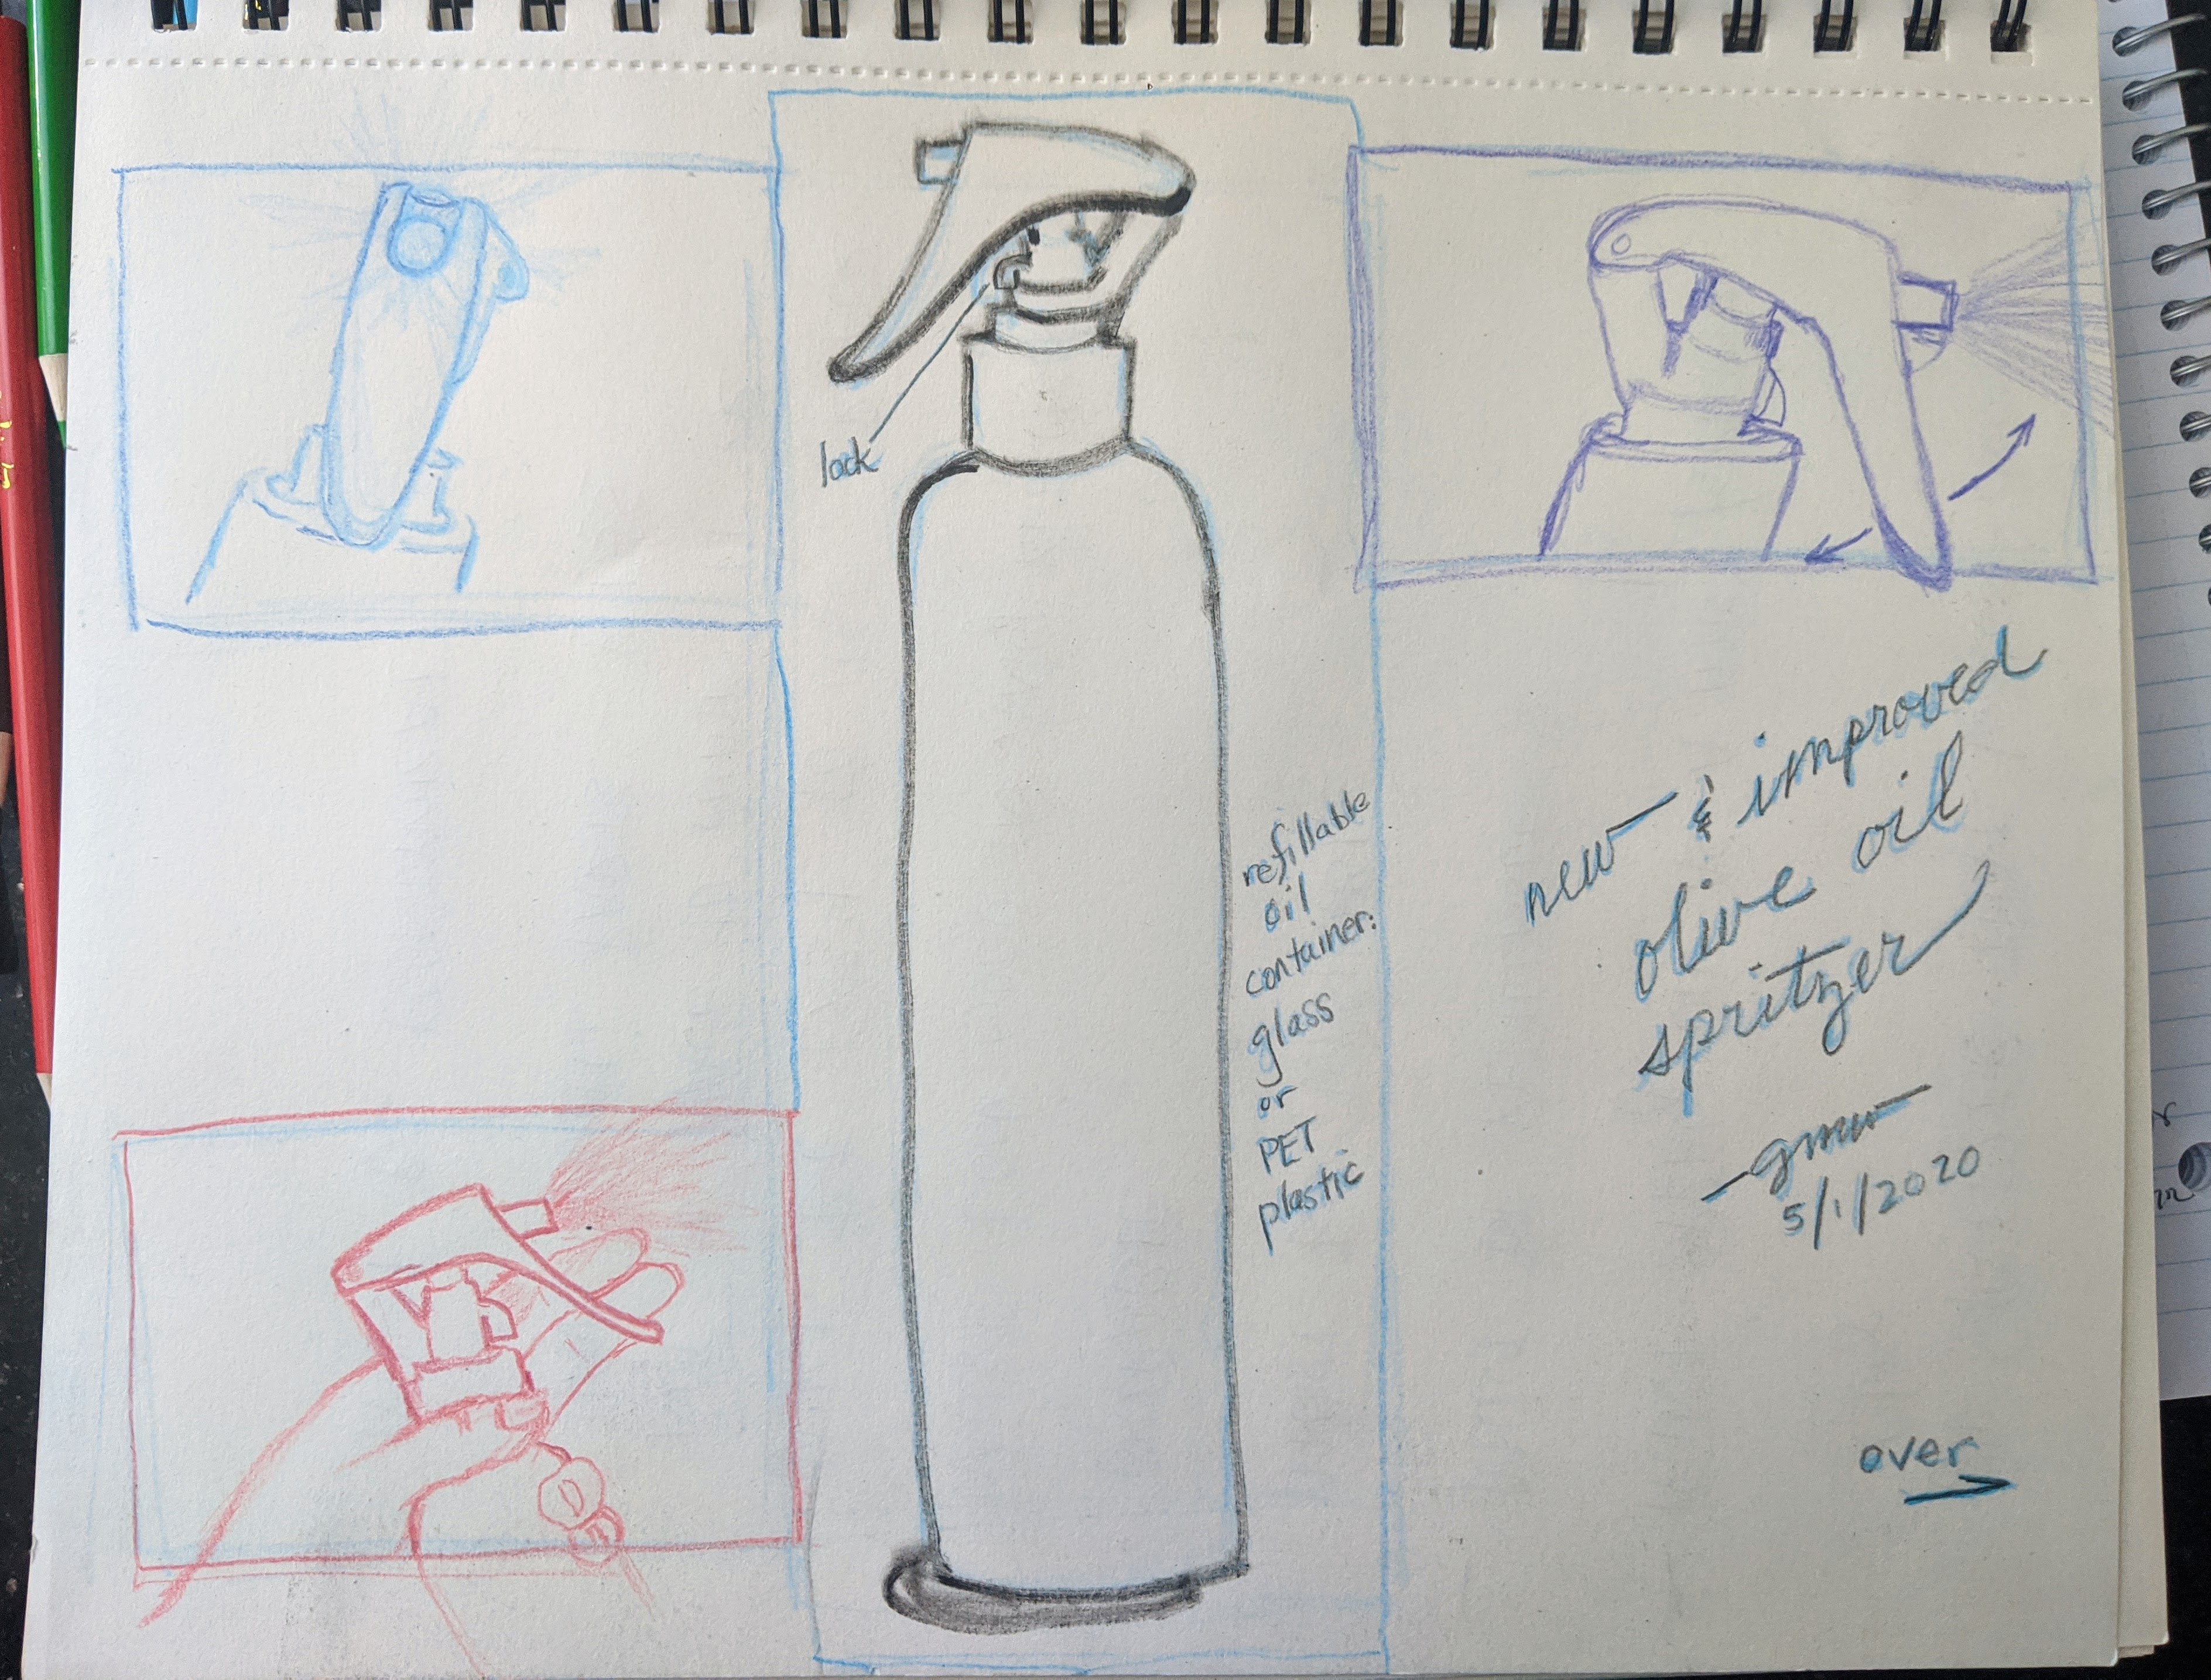 lock
refillable
oil
container:
glass
or
PET
plastic
new & improved
olive oil
spritzer
-gmw
5/1/2020
over